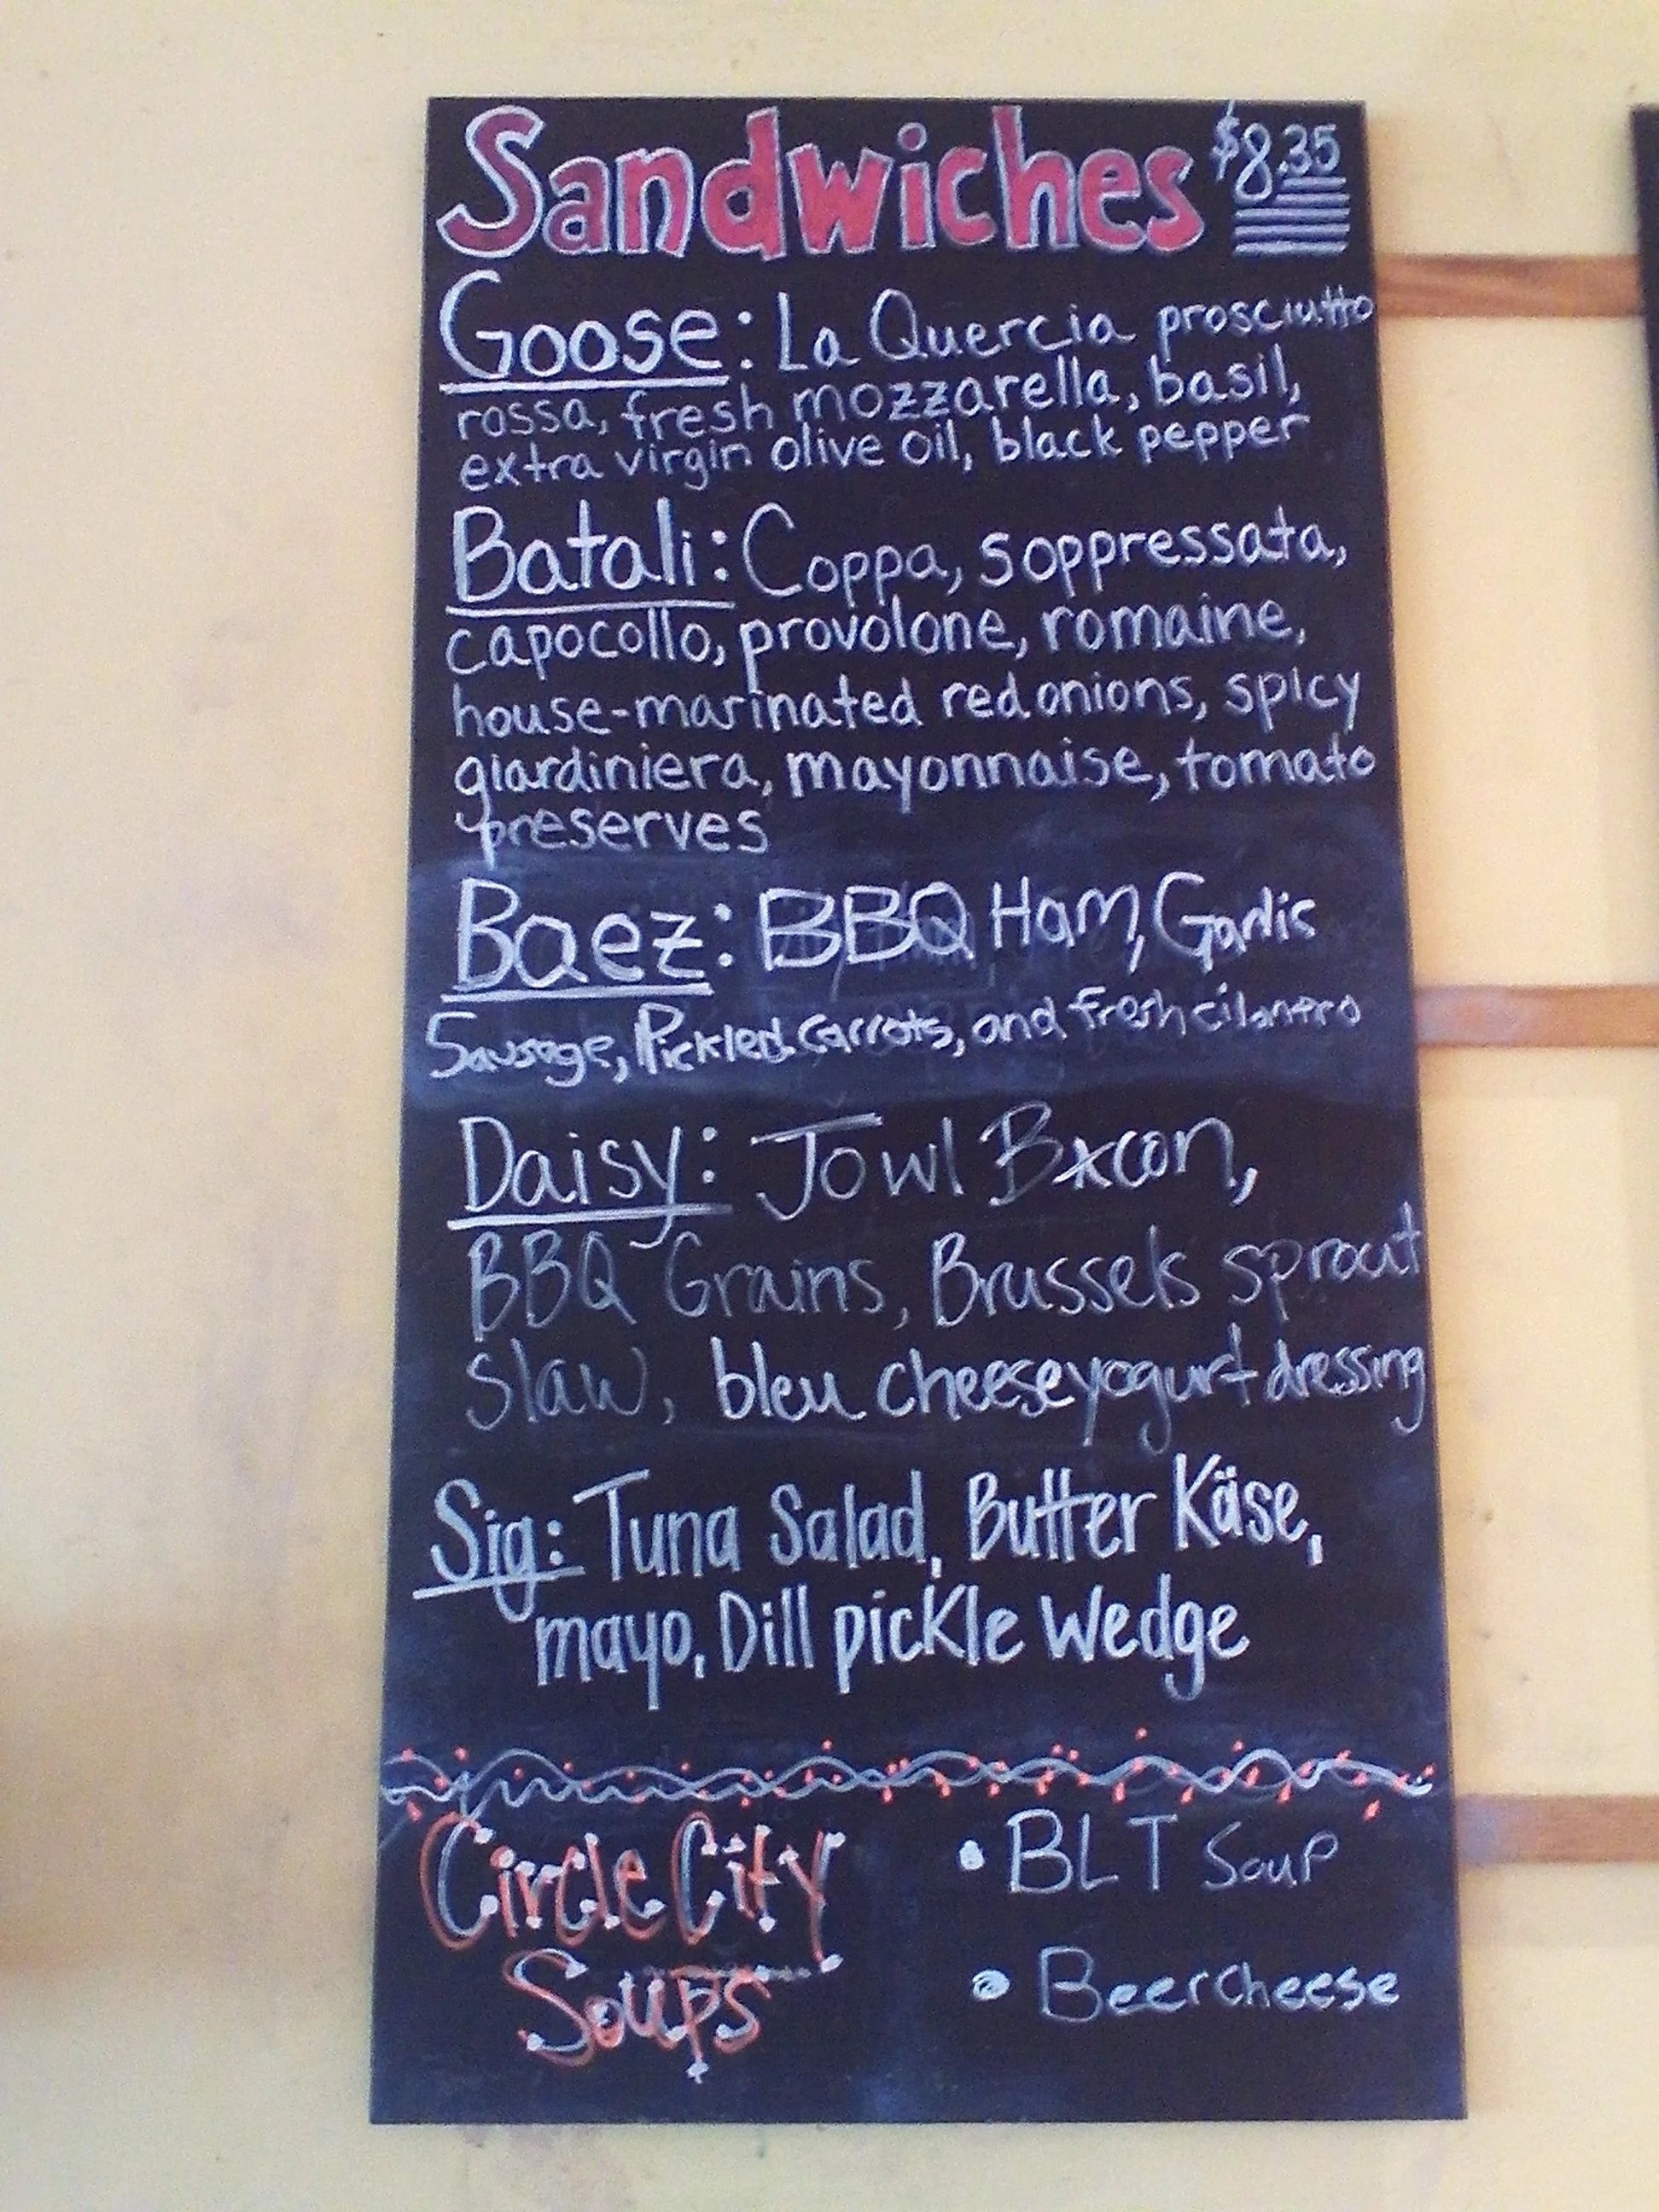 Sandwiches $8.35
Goose: La Quercia prosciutto
rossa, fresh mozzarella, basil,
extra virgin olive oil, black pepper
Batali: Coppa, soppressata,
capocollo, provolone, romaine,
house-marinated red onions, spicy
giardiniera, mayonnaise, tomato
preserves
Baez: BBQ Ham, Garlic
Sausage, Pickled Carrots, and fresh cilantro
Daisy: Jowl Bxcon,
BBQ Grains, Brussels sprout
slaw, bleu cheese yogurt dressing
Sig: Tuna Salad, Butter Käse,
mayo, Dill pickle Wedge
Circle City
Soups
• BLT Soup
• Beer cheese